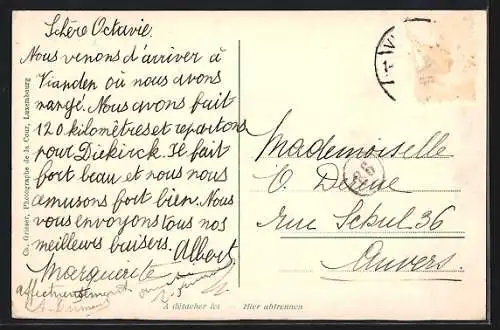 Chère Octavie.
Nous venons d'arriver à
Vianden où nous avons
mangé. Nous avons fait
120 kilomètres et repartons
pour Diekirch. Il fait
fort beau et nous nous
amusons fort bien. Nous
vous envoyons tous nos
meilleurs baisers. Albert
Marguerite
affectueusement
Mademoiselle
O.
rue Schul 36
Anvers.
26
Ch. Grieser, Photographe de la Cour, Luxembourg
A détacher ici — Hier abtrennen